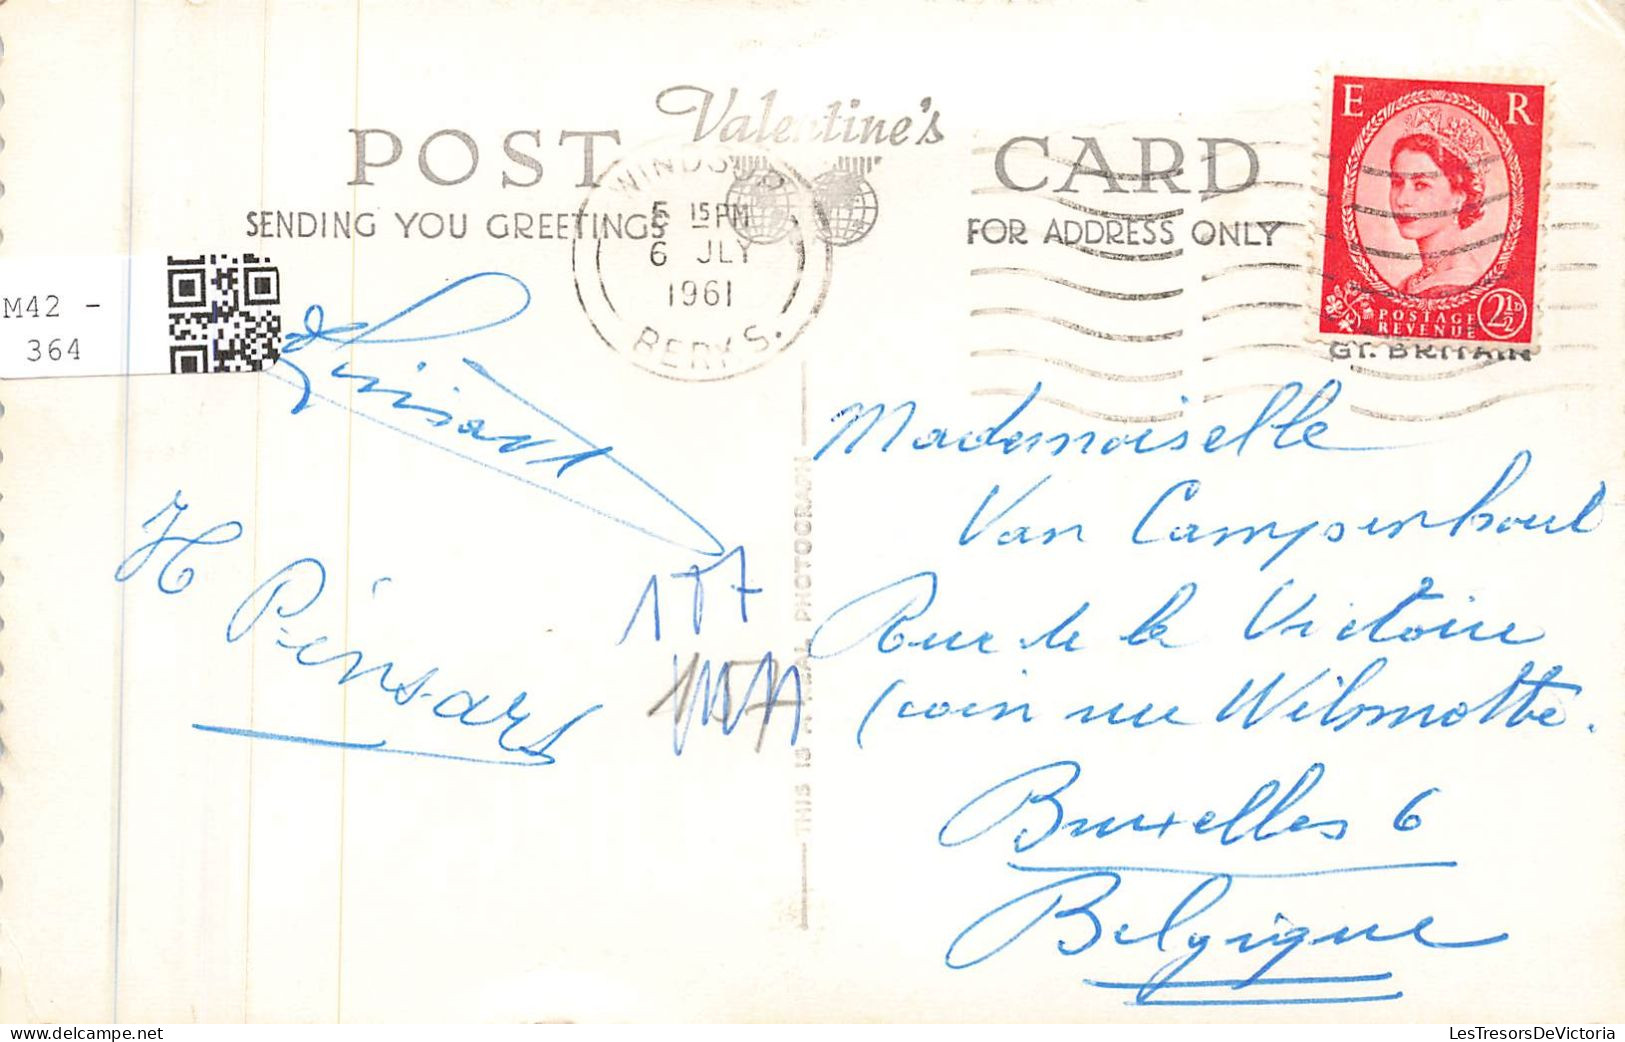 Valentine's
POST CARD
SENDING YOU GREETINGS
FOR ADDRESS ONLY
WINDSOR
5 15 PM
6 JLY
1961
BERKS.
E R
POSTAGE
REVENUE
2½D
GT. BRITAIN
M42 -
364
H
Pinsart
Mademoiselle
Van Campenhout
Rue de la Victoire
(coin rue Wilmotte.
Bruxelles 6
Belgique
THIS IS A REAL PHOTOGRAPH
LesTresorsDeVictoria